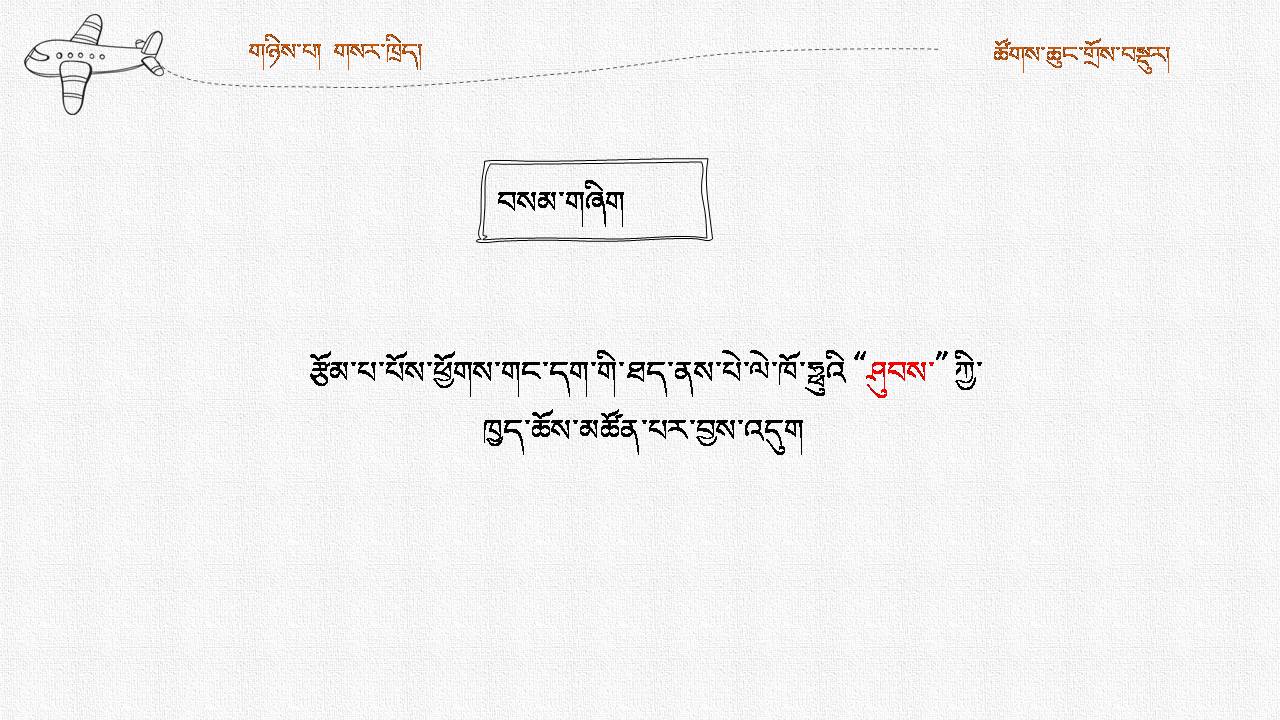 གཉིས་པ། གསར་ཁྲིད།
ཚོགས་ཆུང་གྲོས་བསྡུར།
བསམ་གཞིག
རྩོམ་པ་པོས་ཕྱོགས་གང་དག་གི་ཐད་ནས་པེ་ལེ་ཁོ་ཧྥུའི “ཤུབས་” ཀྱི་
ཁྱད་ཆོས་མཚོན་པར་བྱས་འདུག